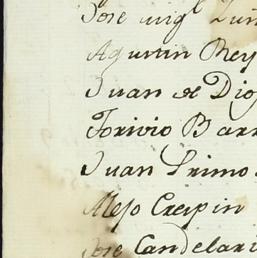 Jose migl Zun
Agustin Rey
Juan de Dios
Torivio Barr
Juan Primo
Alejo Crespin
Jose Candelari